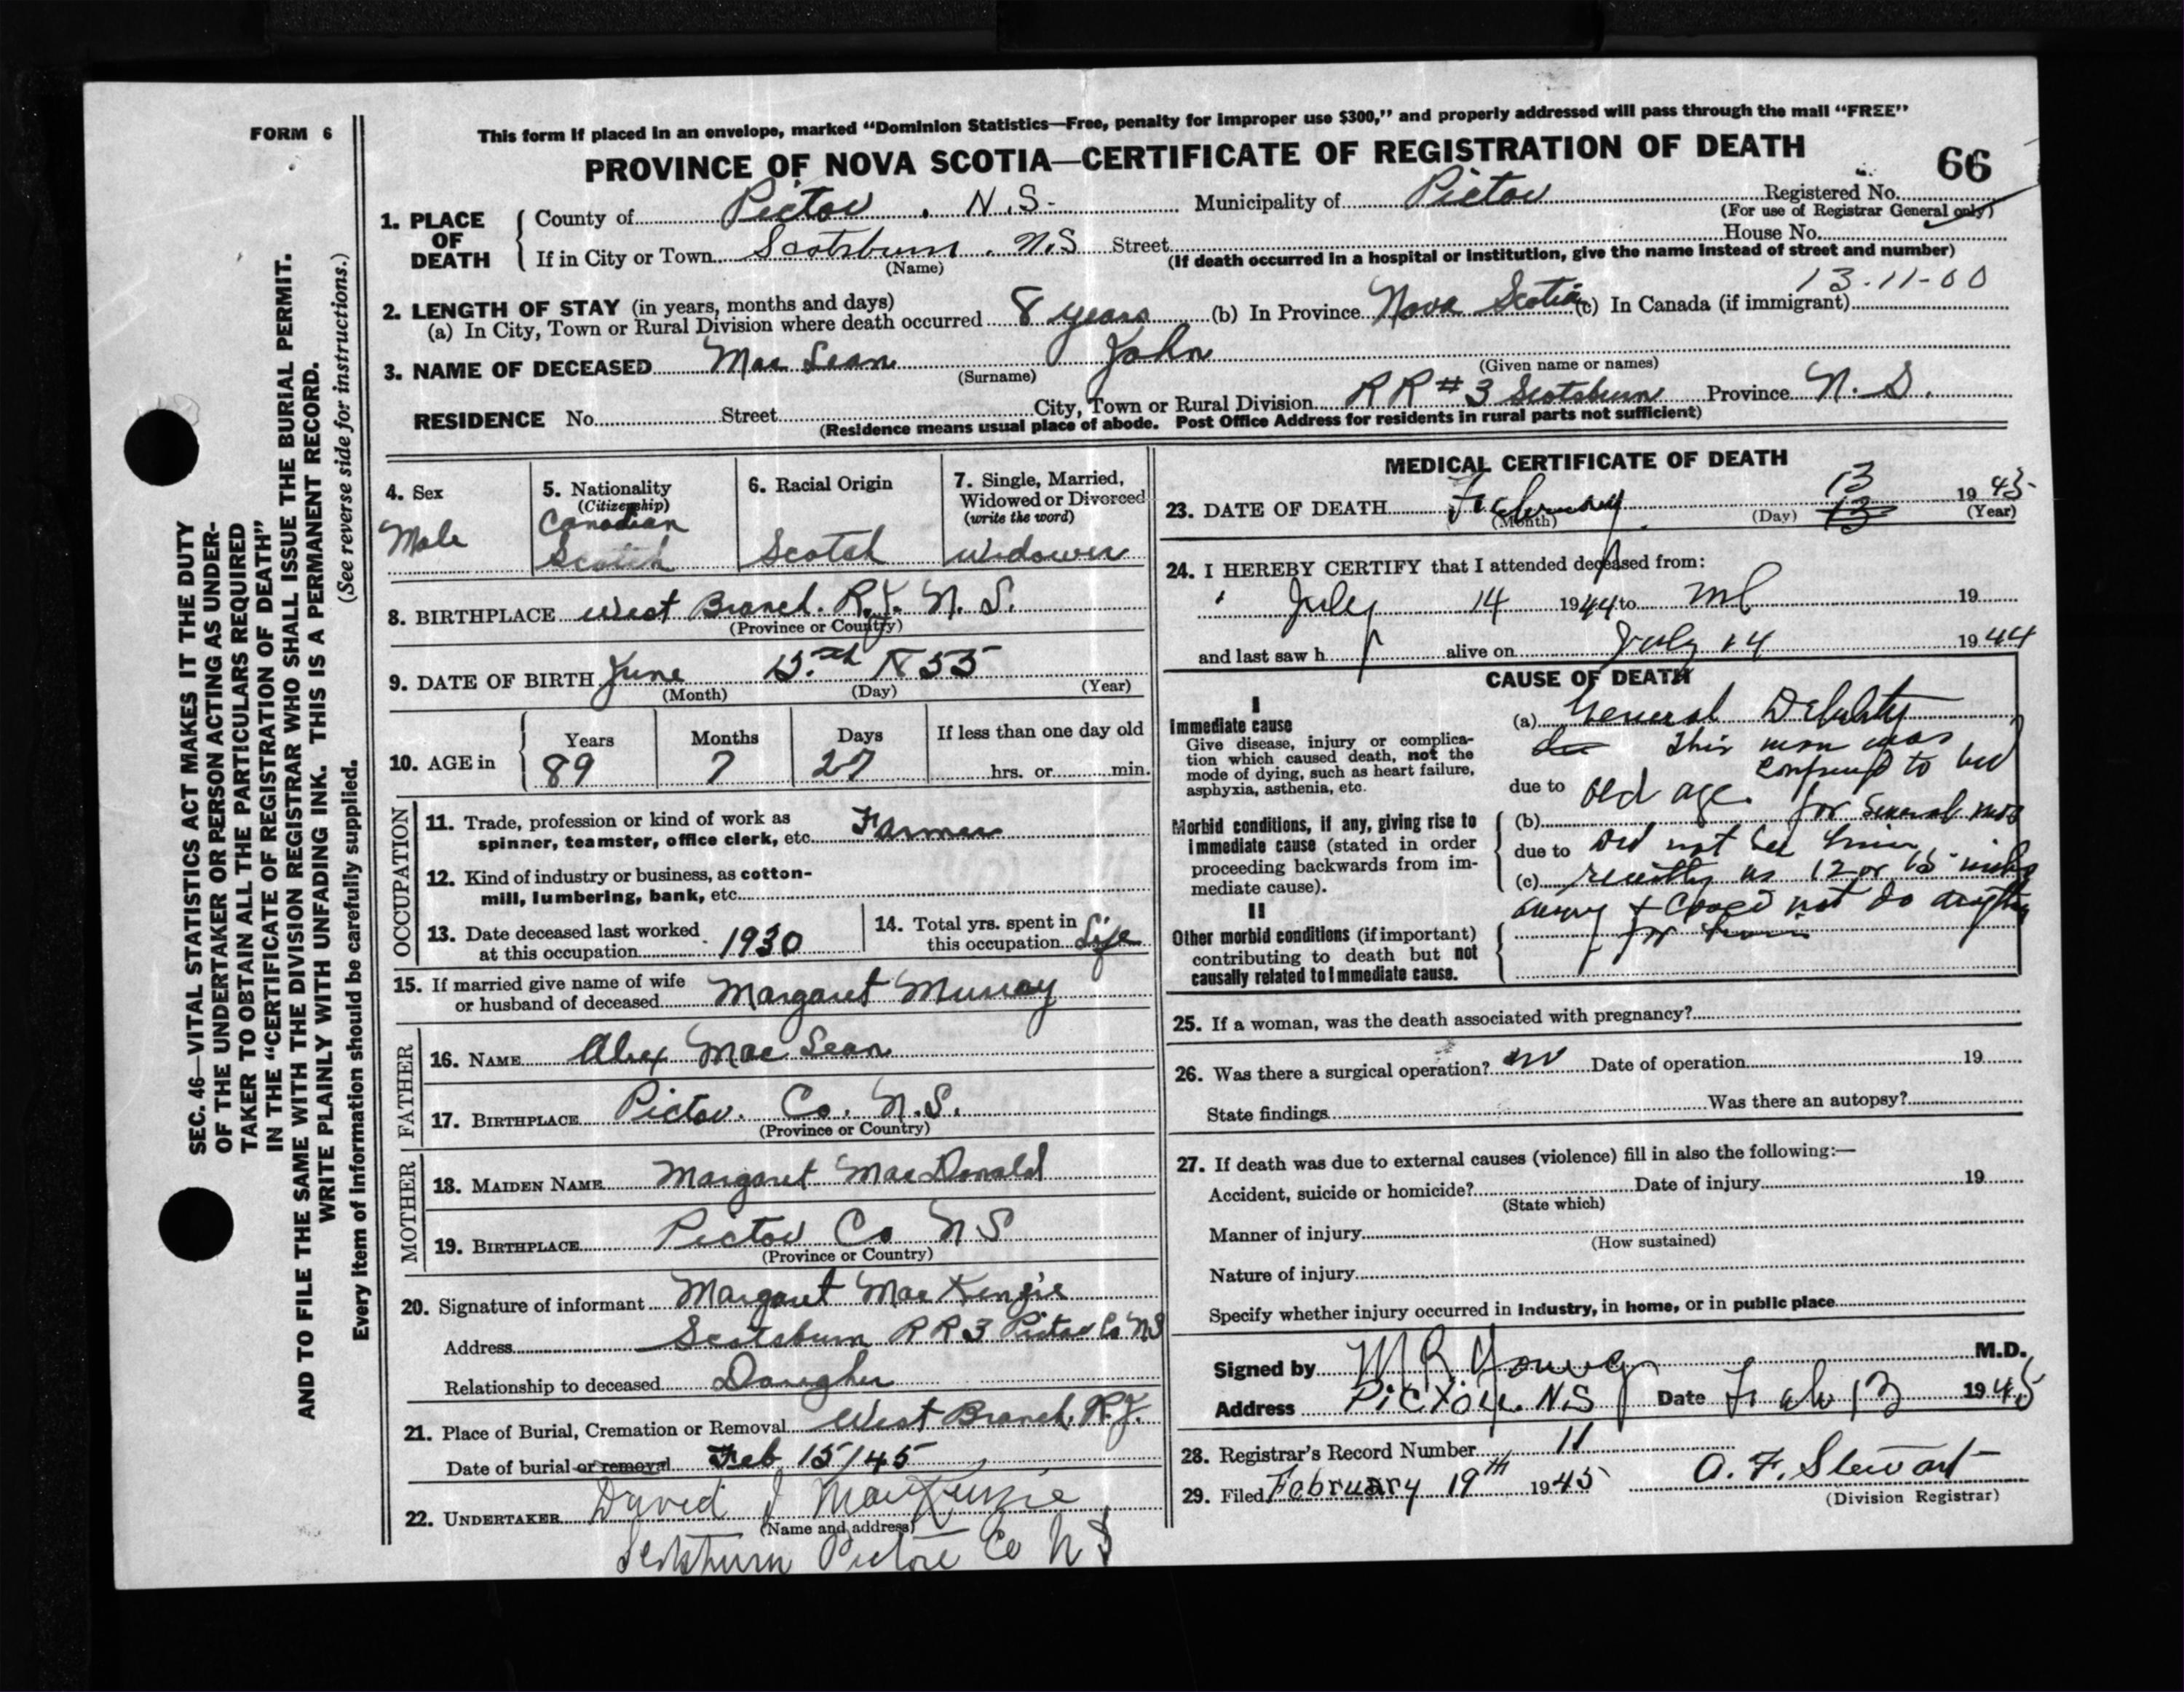 FORM 6
This form if placed in an envelope, marked "Dominion Statistics—Free, penalty for improper use $300," and properly addressed will pass through the mail "FREE"
PROVINCE OF NOVA SCOTIA—CERTIFICATE OF REGISTRATION OF DEATH
66
1. PLACE OF DEATH
County of Pictou, N.S. Municipality of Pictou Registered No.
(For use of Registrar General only)
House No.
If in City or Town Scotsburn. N.S Street
(Name) (If death occurred in a hospital or institution, give the name instead of street and number)
13-11-00
2. LENGTH OF STAY (in years, months and days)
(a) In City, Town or Rural Division where death occurred 8 years (b) In Province Nova Scotia (c) In Canada (if immigrant)
3. NAME OF DECEASED Mac Lean John
(Surname) (Given name or names)
RESIDENCE No. Street City, Town or Rural Division RR #3 Scotsburn Province N. S.
(Residence means usual place of abode. Post Office Address for residents in rural parts not sufficient)
4. Sex
Male
5. Nationality
(Citizenship)
Canadian
Scotch
6. Racial Origin
Scotch
7. Single, Married, Widowed or Divorced
(write the word)
Widower
8. BIRTHPLACE West Branch. R.J. N. S.
(Province or Country)
9. DATE OF BIRTH June 15th 1855
(Month) (Day) (Year)
10. AGE in
Years Months Days If less than one day old
89 7 27 hrs. or min.
OCCUPATION
11. Trade, profession or kind of work as
spinner, teamster, office clerk, etc. Farmer
12. Kind of industry or business, as cotton-
mill, lumbering, bank, etc.
13. Date deceased last worked
at this occupation 1930
14. Total yrs. spent in
this occupation Life
15. If married give name of wife
or husband of deceased Margaret Murray
FATHER
16. NAME Alex Mac Lean
17. BIRTHPLACE Pictou. Co. N.S.
(Province or Country)
MOTHER
18. MAIDEN NAME Margaret MacDonald
19. BIRTHPLACE Pictou Co N S
(Province or Country)
20. Signature of informant Margaret MacKenzie
Address Scotsburn R R 3 Pictou Co NS
Relationship to deceased Daughter
21. Place of Burial, Cremation or Removal West Branch, R.J.
Date of burial or removal Feb 15/45
22. UNDERTAKER David J MacKenzie
(Name and address)
Scotsburn Pictou Co N S
MEDICAL CERTIFICATE OF DEATH
23. DATE OF DEATH February 13 13 1945
(Month) (Day) (Year)
24. I HEREBY CERTIFY that I attended deceased from:
July 14 1944 to 19
and last saw h alive on July 14 1944
CAUSE OF DEATH
I
Immediate cause
Give disease, injury or complica-
tion which caused death, not the
mode of dying, such as heart failure,
asphyxia, asthenia, etc.
Morbid conditions, if any, giving rise to
immediate cause (stated in order
proceeding backwards from im-
mediate cause).
II
Other morbid conditions (if important)
contributing to death but not
causally related to immediate cause.
(a) General Debility
This man was
confined to bed
due to old age. for several mos
(b)
due to Did not see him
(c) recently as 12 or 15 miles
away & could not do anything
for him
25. If a woman, was the death associated with pregnancy?
26. Was there a surgical operation? no Date of operation 19
State findings Was there an autopsy?
27. If death was due to external causes (violence) fill in also the following:—
Accident, suicide or homicide? Date of injury 19
(State which)
Manner of injury
(How sustained)
Nature of injury
Specify whether injury occurred in industry, in home, or in public place
Signed by M R Young M.D.
Address Pictou. N.S Date Feb 13 1945
28. Registrar's Record Number 11
29. Filed February 19th 1945 A. F. Stewart
(Division Registrar)
SEC. 46—VITAL STATISTICS ACT MAKES IT THE DUTY
OF THE UNDERTAKER OR PERSON ACTING AS UNDER-
TAKER TO OBTAIN ALL THE PARTICULARS REQUIRED
IN THE "CERTIFICATE OF REGISTRATION OF DEATH"
AND TO FILE THE SAME WITH THE DIVISION REGISTRAR WHO SHALL ISSUE THE BURIAL PERMIT.
WRITE PLAINLY WITH UNFADING INK. THIS IS A PERMANENT RECORD.
Every item of information should be carefully supplied. (See reverse side for instructions.)